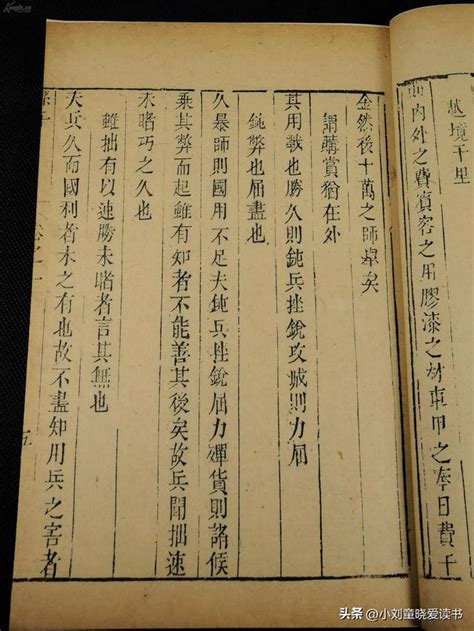 越境千里
則內外之費賓客之用膠漆之材車甲之奉日費千
金然後十萬之師舉矣
謂購賞猶在外
其用戰也勝久則鈍兵挫銳攻城則力屈
鈍弊也屈盡也
久暴師則國用不足夫鈍兵挫銳屈力殫貨則諸侯
乘其弊而起雖有知者不能善其後矣故兵聞拙速
未睹巧之久也
雖拙有以速勝未睹者言其無也
夫兵久而國利者未之有也故不盡知用兵之害者
孫子
卷之一
五
头条 @小刘童晓爱读书